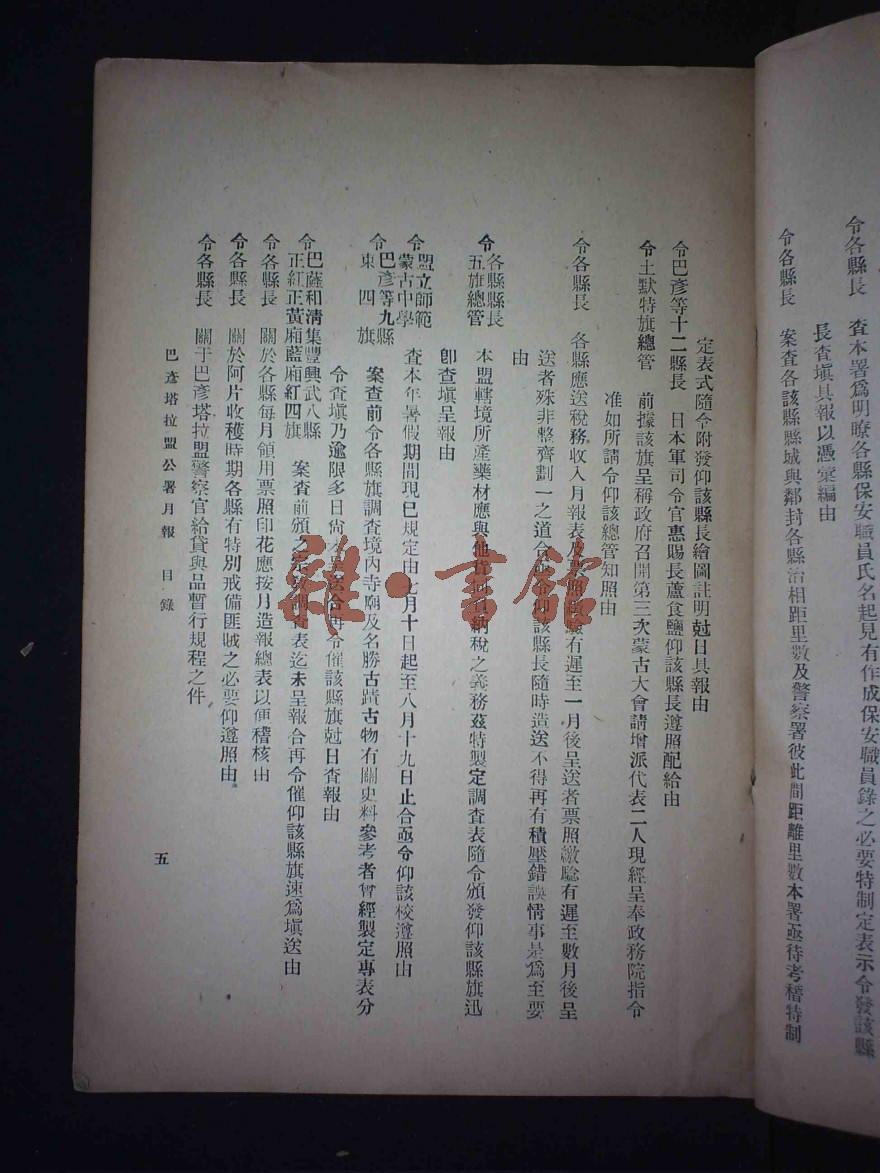 令各縣長　查本署爲明瞭各縣保安職員氏名起見有作成保安職員錄之必要特制定表示令發該縣
長查塡具報以憑彙編由
令各縣長　案查各該縣縣城與鄰封各縣治相距里數及警察署彼此間距離里數本署亟待考稽特制
定表式隨令附發仰該縣長繪圖註明尅日具報由
令巴彥等十二縣長　日本軍司令官惠賜長蘆食鹽仰該縣長遵照配給由
令土默特旗總管　前據該旗呈稱政府召開第三次蒙古大會請增派代表二人現經呈奉政務院指令
准如所請令仰該總管知照由
令各縣長　各縣應送稅務收入月報表及票照繳驗有遲至一月後呈送者票照繳驗有遲至數月後呈
送者殊非整齊劃一之道合亟令仰該縣長隨時造送不得再有積壓錯誤情事是爲至要
由
令各縣縣長五旗總管　本盟轄境所產藥材應與他貨同負納稅之義務茲特製定調查表隨令頒發仰該縣旗迅
卽查塡呈報由
令盟立師範蒙古中學　查本年暑假期間現已規定由七月十日起至八月十九日止合亟令仰該校遵照由
令巴彥等九縣東四旗　案查前令各縣旗調查境內寺廟及名勝古蹟古物有關史料參考者曾經製定專表分
令查塡乃逾限多日尙未呈送合再令催該縣旗尅日查報由
令巴薩和淸集豐興武八縣正紅正黃廂藍廂紅四旗　案查前頒之調查表迄未呈報合再令催仰該縣旗速爲塡送由
令各縣長　關於各縣每月領用票照印花應按月造報總表以便稽核由
令各縣長　關於阿片收穫時期各縣有特別戒備匪賊之必要仰遵照由
令各縣長　關于巴彥塔拉盟警察官給貸與品暫行規程之件
巴彥塔拉盟公署月報　目錄
五
雜·書館